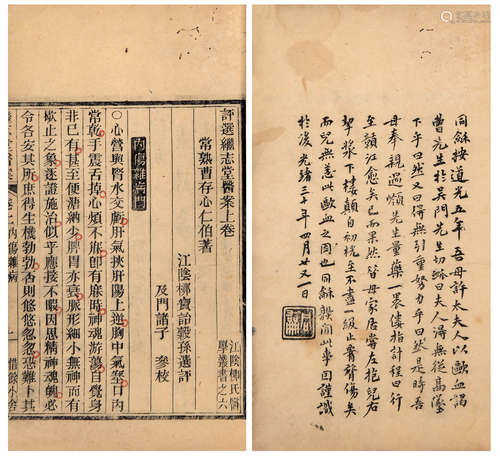 同龢按道光五年吾母許太夫人以歐血謁
曹先生於吳門先生切脉曰夫人得無從高墜
下乎曰然又曰得無引重努力乎曰然是時吾
母奉親過先生量藥一裹僂指計程曰行
至江愈矣已而果然母家居嘗左抱兒右
挈漿下樓顛自初桄至不盡一級止脊傷矣
而兒無恙此歐血之因也同龢聞此事因謹識
於後光緒三十年四月廿又一日
評選繼志堂醫案上卷
江陰柳氏醫
學叢書之六
常熟曹存心仁伯著
江陰柳寶詒穀孫選評
及門諸子 參校
內傷雜病門
○心營與腎水交虧肝氣挾肝陽上逆胸中氣窒口內
常乾手震舌掉心煩不寐卽有寐時神魂游蕩自覺身
非己有甚至便溏納少脾胃亦衰脈形細小無神而有
歇止之象逐證施治似乎應接不暇因思精神魂魄必
令各安其所庶得生機勃勃否則悠悠忽忽恐難卜其
內傷雜病 一 惜餘小舍